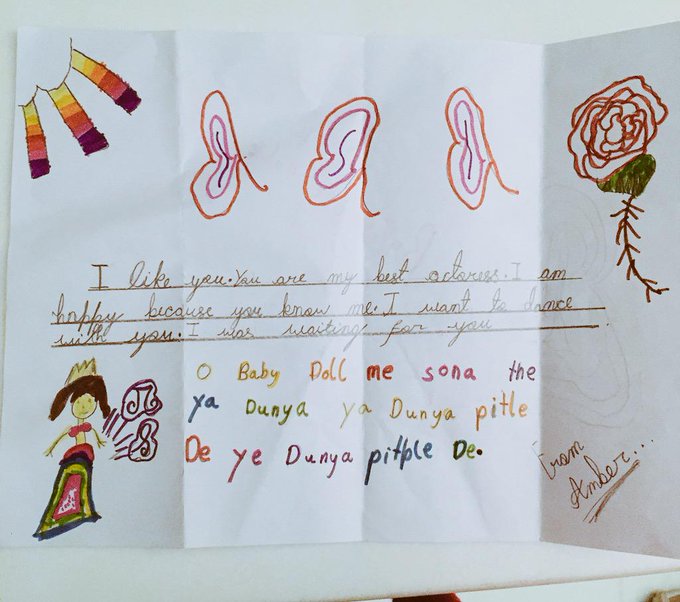 I like you. You are my best actoress. I am
happy because you know me. I want to dance
with you. I was waiting for you
O Baby Doll me sona the
ya Dunya ya Dunya pitle
De ye Dunya pitple De.
From
Amber...